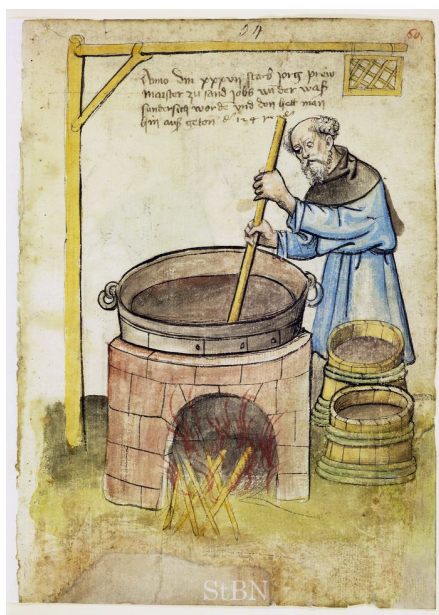 54
60.
Anno dm xxxvii starb jorg prew
maister zu sand jobs wa der was
sundersich worde vnd den hett man
hin aus geton
StBN